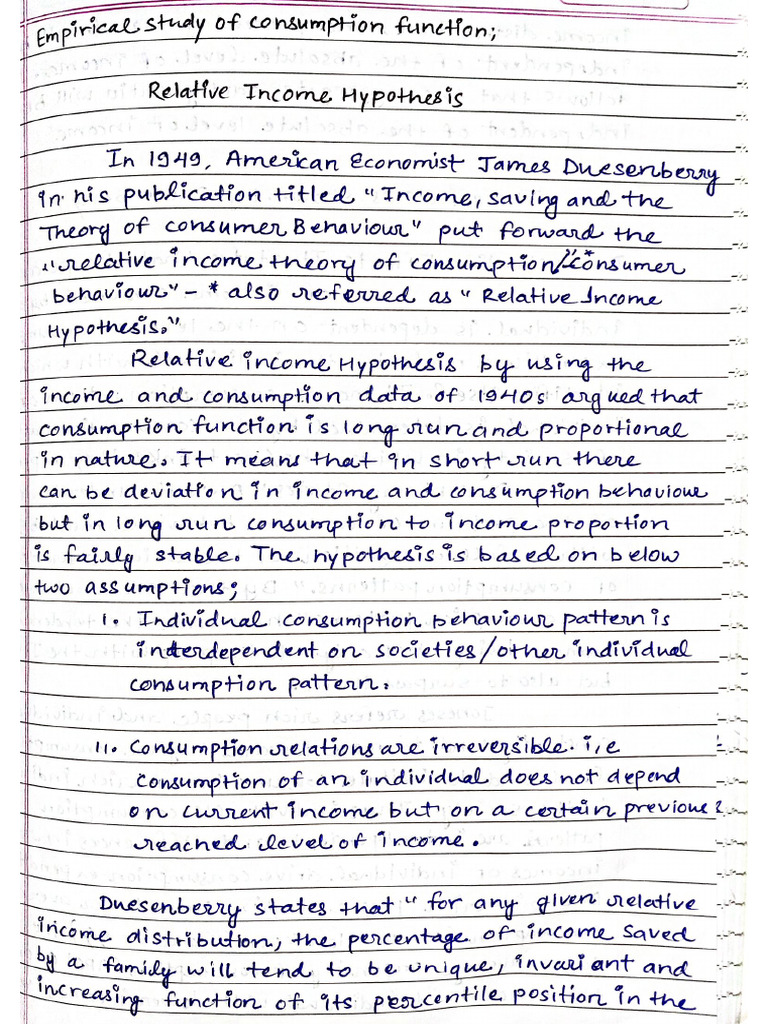 Empirical study of consumption function;
Relative Income Hypothesis
In 1949, American Economist James Duesenberry
in his publication titled "Income, saving and the
Theory of consumer Behaviour" put forward the
"relative income theory of consumption/consumer
behaviour" - * also referred as "Relative Income
Hypothesis."
Relative income Hypothesis by using the
income and consumption data of 1940s argued that
consumption function is long run and proportional
in nature. It means that in short run there
can be deviation in income and consumption behaviour
but in long run consumption to income proportion
is fairly stable. The hypothesis is based on below
two assumptions;
i. Individual consumption behaviour pattern is
interdependent on societies/other individual
consumption pattern.
ii. Consumption relations are irreversible i,e
consumption of an individual does not depend
on current income but on a certain previous
reached level of income.
Duesenberry states that "for any given relative
income distribution, the percentage of income saved
by a family will tend to be unique, invariant and
increasing function of its percentile position in the